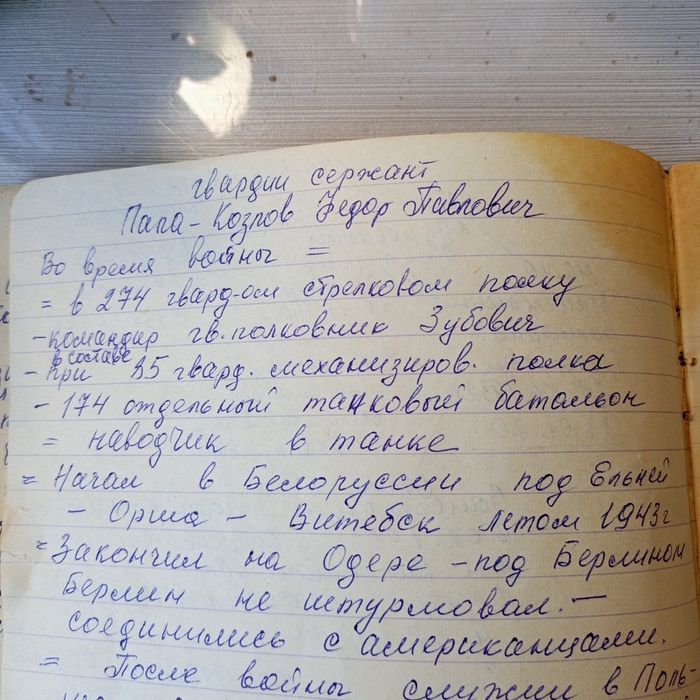 гвардии сержант
Папа - Козлов Федор Павлович
Во время войны =
= в 274 гвард-ом стрелковом полку
- командир гв. полковник Зубович
в составе
- при 35 гвард. механизиров. полка
- 174 отдельный танковый батальон
= наводчик в танке
= Начал в Белоруссии под Ельней
- Орша - Витебск летом 1943г
= Закончил на Одере - под Берлином
Берлин не штурмовал. -
соединились с американцами.
= После войны служил в Поль-